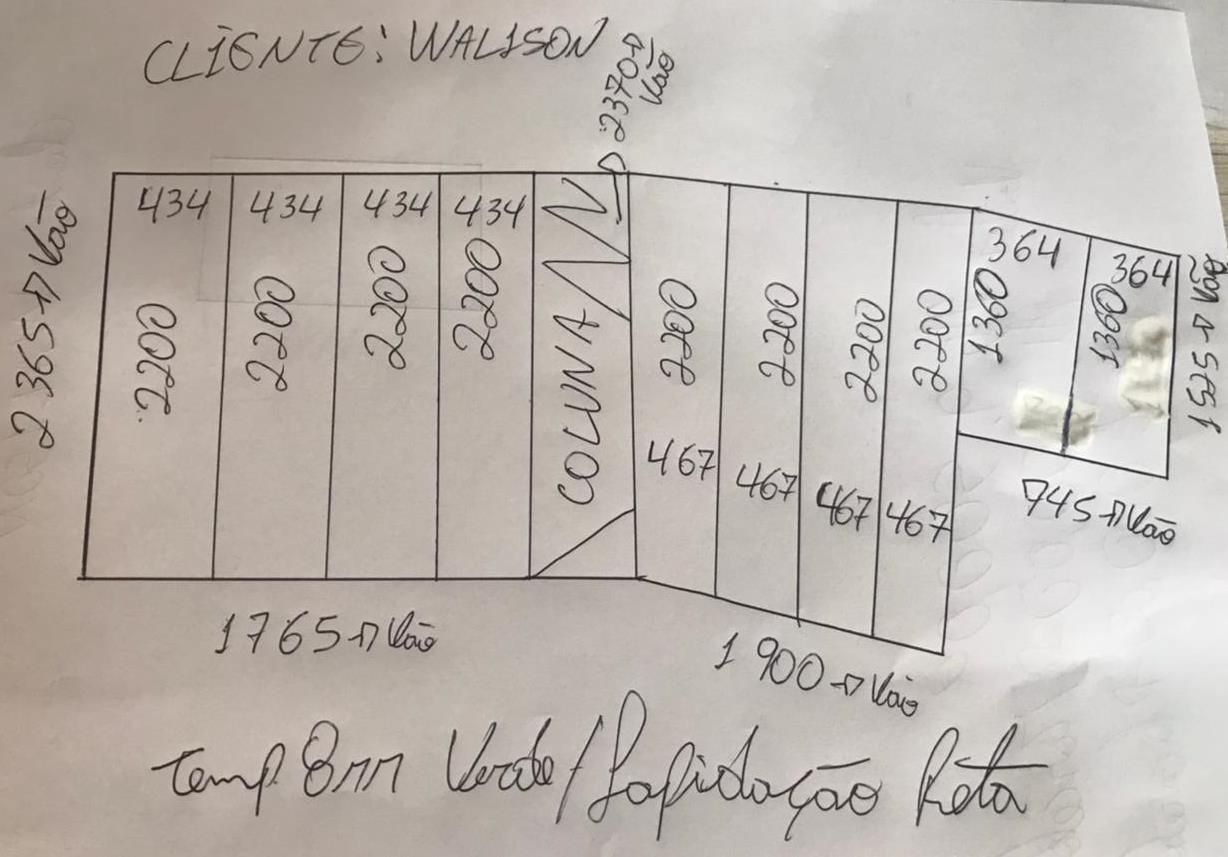 CLIENTE: WALISON
2370 → Vão
2365 → Vão
434 434 434 434
2200 2200 2200 2200
COLUNA
2200 2200 2200 2200
467 467 467 467
364 364
1360 1360
1525 → Vão
745 → Vão
1765 → Vão
1900 → Vão
Temp. 8mm Verde / Lapidação Reta